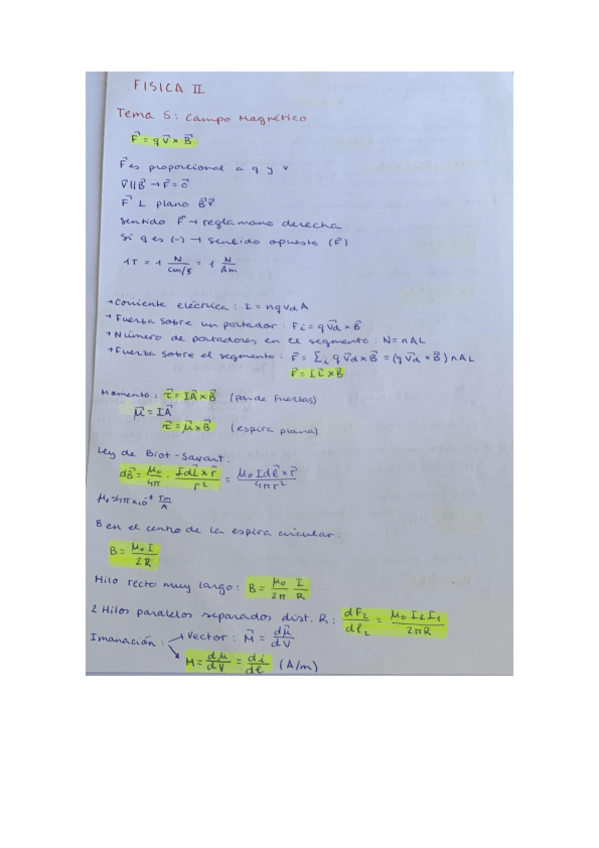 FISICA II
Tema 5: Campo Magnético
F⃗ = q v⃗ × B⃗
F⃗ es proporcional a q y v
v⃗ || B⃗ → F⃗ = 0⃗
F⃗ ⊥ plano B⃗ v⃗
sentido F⃗ → regla mano derecha
Si q es (-) → sentido opuesto (F⃗)
1T = 1 N/Cm/s = 1 N/Am
→ Corriente eléctrica: I = nqv_d A
→ Fuerza sobre un portador: F_i = q v⃗_d × B⃗
→ Número de portadores en el segmento: N = nAL
→ Fuerza sobre el segmento: F⃗ = Σ_i q v⃗_d × B⃗ = (q v⃗_d × B⃗) nAL
F⃗ = I L⃗ × B⃗
Momento: τ⃗ = I A⃗ × B⃗ (par de fuerzas)
μ⃗ = I A⃗
τ⃗ = μ⃗ × B⃗ (espira plana)
Ley de Biot-Savart:
dB⃗ = μ₀/4π · I dl⃗ × r̂/r² = μ₀ I dl⃗ × r̂/4πr²
B en el centro de la espira circular:
B = μ₀ I/2R
Hilo recto muy largo: B = μ₀/2π I/R
2 Hilos paralelos separados dist. R: dF₂/dl₂ = μ₀ I₂ I₁/2πR
Imanación: → Vector: M⃗ = dμ⃗/dV
→ M = dμ/dV = di/dl (A/m)